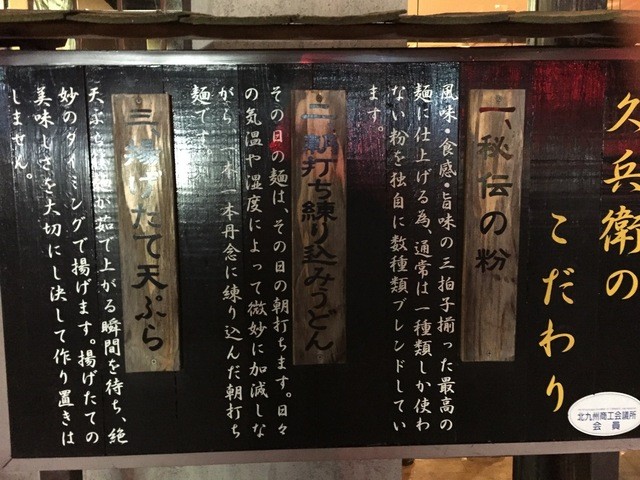 久兵衛の
こだわり
一、秘伝の粉
風味・食感・旨味の三拍子揃った最高の
麺に仕上げる為、通常は一種類しか使わ
ない粉を独自に数種類ブレンドしてい
ます。
二、朝打ち練り込みうどん
その日の麺は、その日の朝打ちます。日々
の気温や湿度によって微妙に加減しな
がら、一本一本丹念に練り込んだ朝打ち
麺です
三、揚げたて天ぷら
天ぷ が茹で上がる瞬間を待ち、絶
妙のタイミングで揚げます。揚げたての
美味しさを大切にし決して作り置きは
しません。
北九州商工会議所
会員